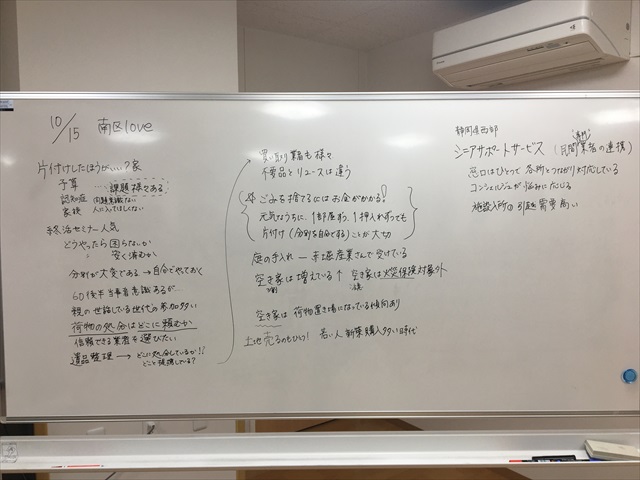 10/15 南区love
片付けしたほうがいい?家
予算 … 課題様々である
認知症 問題意識ない
家族 人に入ってほしくない
終活セミナー人気
どうやったら困らないか
〃 安く済むか
分別が大変である → 自分でやっておく
60後半当事者意識あるが…
親の世話している世代の参加多い
荷物の処分はどこに頼むか
信頼できる業者を選びたい
遺品整理 → どこに処分しているか!!
どこと提携している?
買い取り業者も様々
不要品とリユースは違う
☆ ごみを捨てるにはお金がかかる!
元気なうちに、1部屋ずつ、1押入れずつでも
片付け(分別を自分でする)ことが大切
庭の手入れ ー 産業さんで受けている
空き家は増えている↑ 空き家は火災保険対象外
空き家は 荷物置き場になっている傾向あり
土地売るのもひとつ! 若い人 新築購入多い時代
静岡県西部
シニアサポートサービス (民間業者の連携)
窓口はひとつで 各所とつながり対応している
コンシェルジュが悩みに応じる
施設入所の引越 需要高い